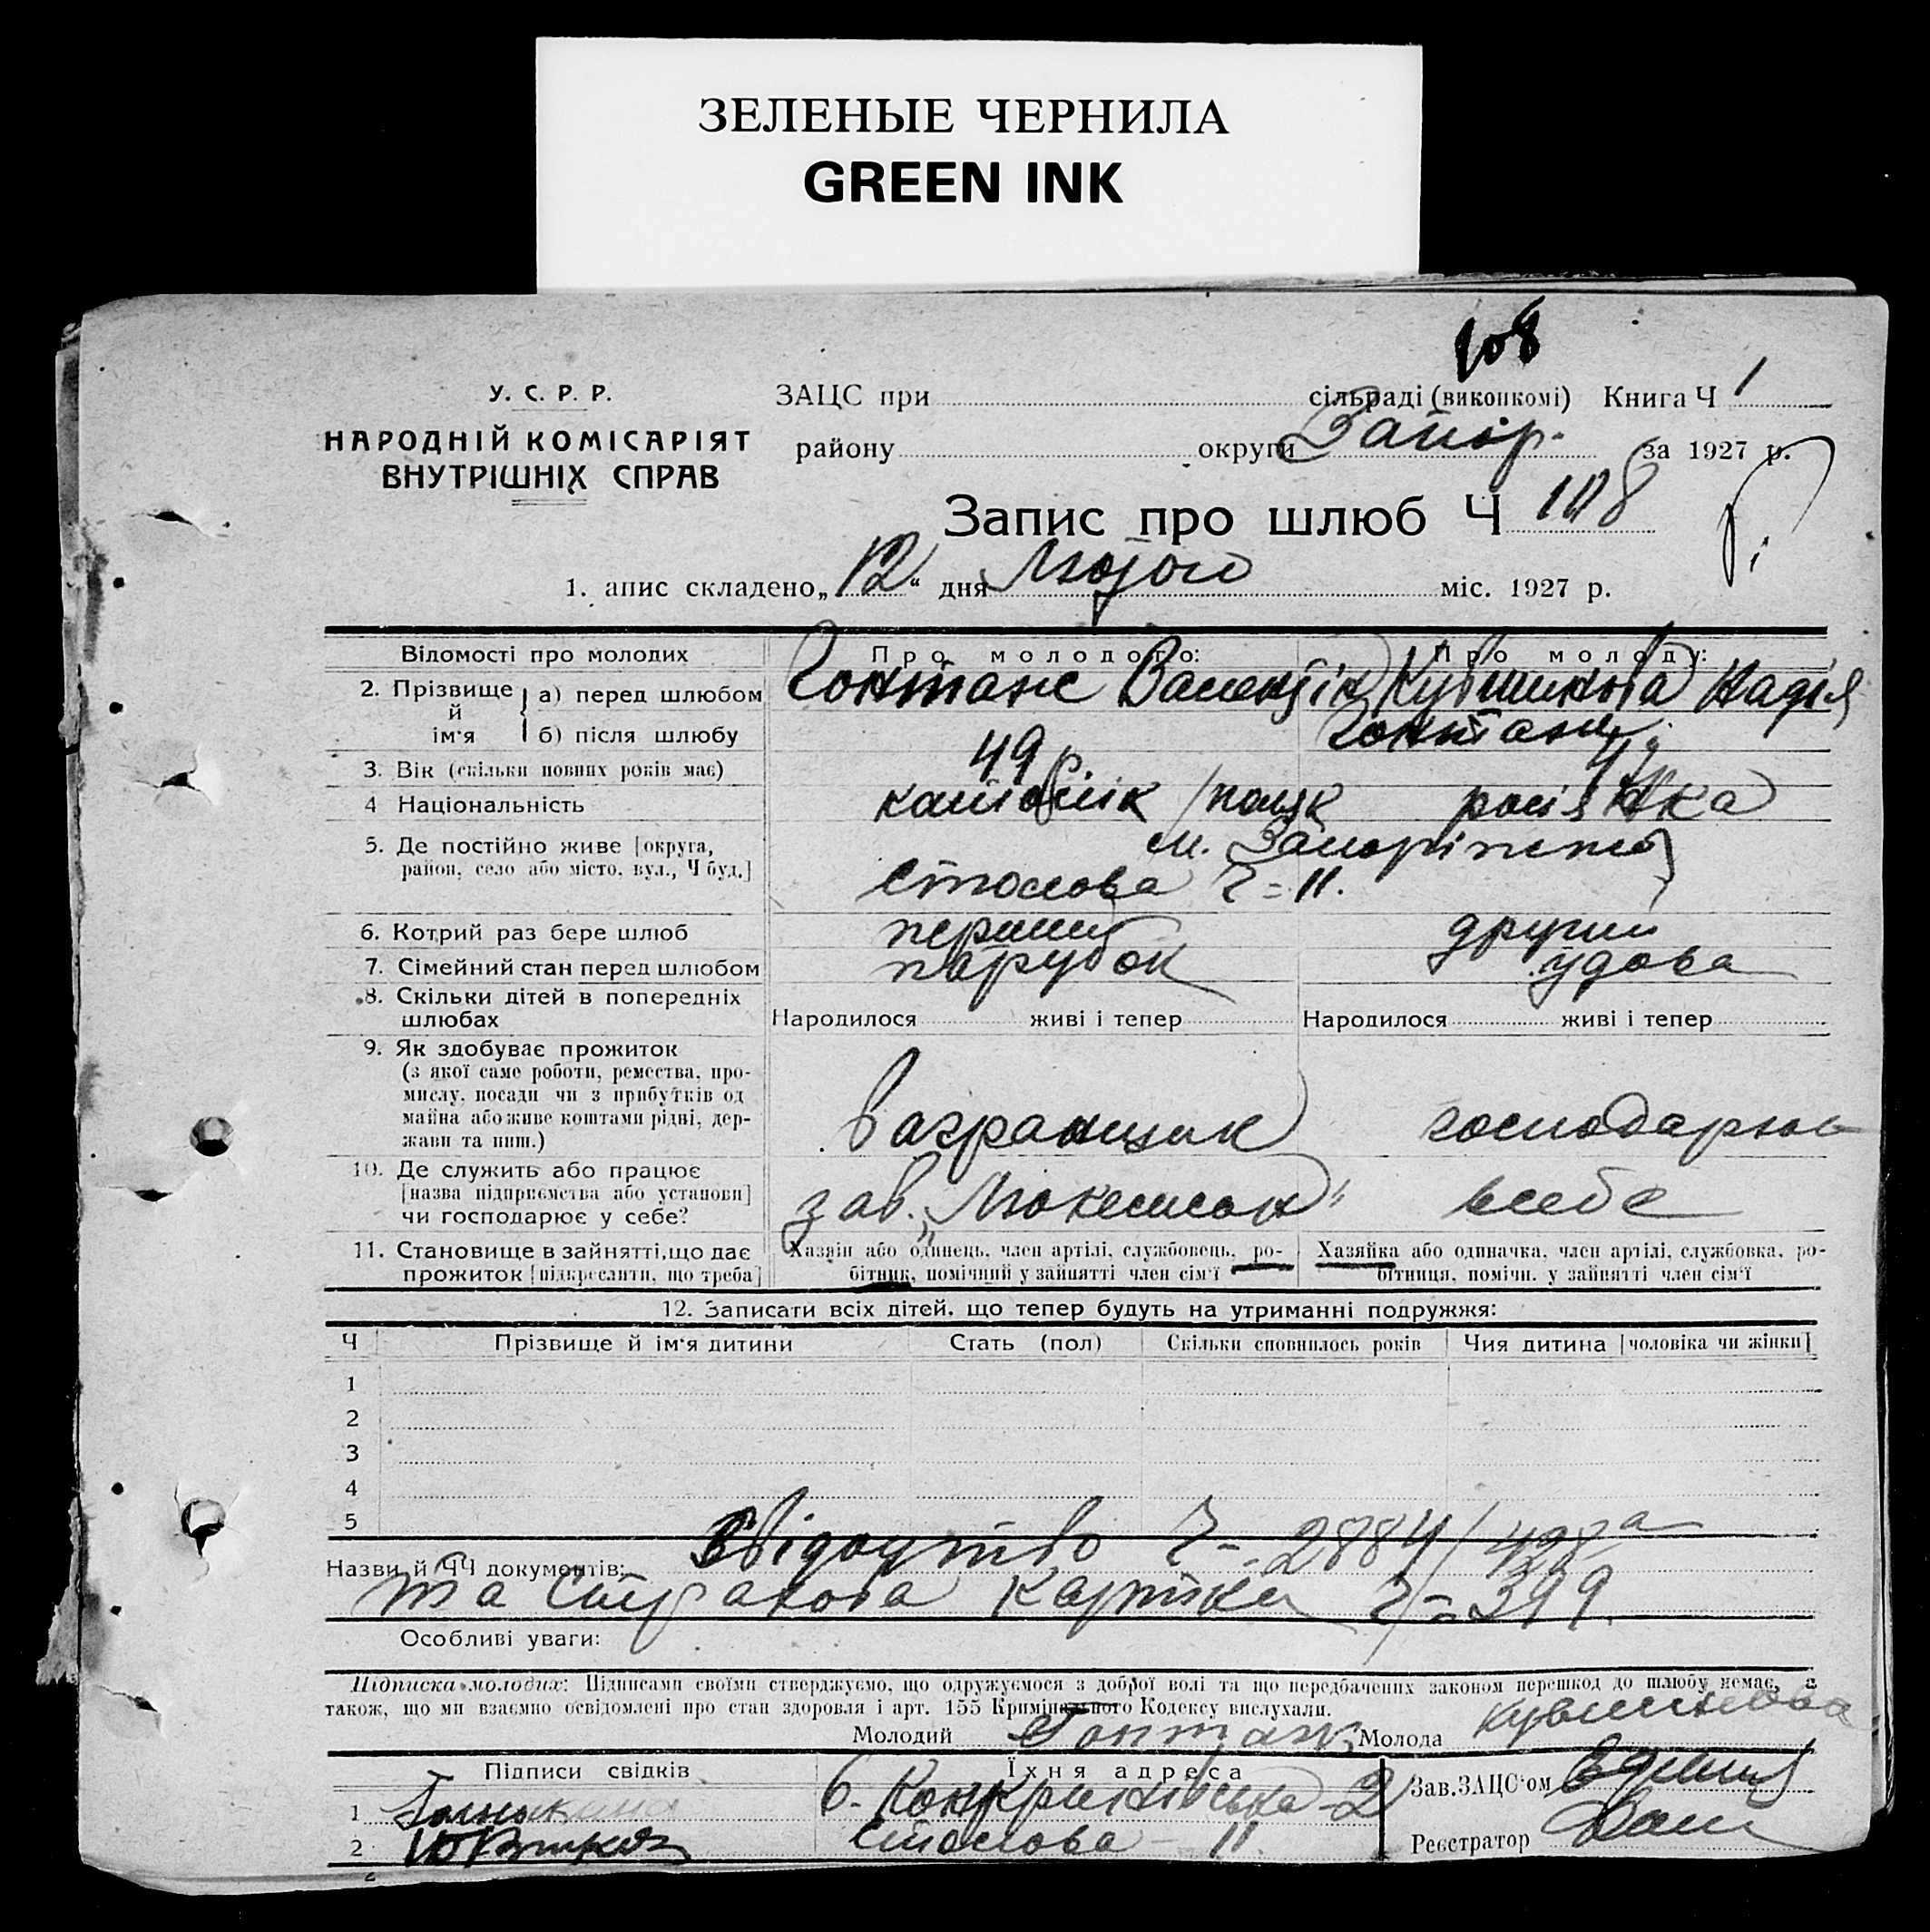 ЗЕЛЕНЫЕ ЧЕРНИЛА
GREEN INK
108
У. С. Р. Р.
НАРОДНІЙ КОМІСАРІЯТ
ВНУТРІШНІХ СПРАВ
ЗАЦС при сільраді (виконкомі) Книга Ч 1
району округи Запор. за 1927 р.
Запис про шлюб Ч 108
1. апис складено „12“ дня Лютого міс. 1927 р.
Відомості про молодих
Про молодого:
Про молоду:
2. Прізвище й ім‘я
а) перед шлюбом
Гонтаж
Кувшинова Надія
б) після шлюбу
Гонтаж
3. Вік (скільки повних років має)
49 р
4 Національність
католік / поляк
росіянка
5. Де постійно живе [округа,
район, село або місто, вул., Ч буд.]
м. Запоріжжя
Столова Ч = 11.
6. Котрий раз бере шлюб
перший
другий
7. Сімейний стан перед шлюбом
парубок
удова
8. Скільки дітей в попередніх
шлюбах
Народилося живі і тепер
Народилося живі і тепер
9. Як здобуває прожиток
(з якої саме роботи, ремества, про-
мислу, посади чи з прибутків од
майна або живе коштами рідні, дер-
жави та инш.)
Вагранщик
господарює
10. Де служить або працює
[назва підприємства або установи]
чи господарює у себе?
зав.
всебе
11. Становище в зайнятті, що дає
прожиток [підкреслити, що треба]
Хазяїн або одинець, член артілі, службовець, ро-
бітник, помічний у зайнятті член сім‘ї
Хазяйка або одиначка, член артілі, службовка, ро-
бітниця, помічн. у зайнятті член сім‘ї
12. Записати всіх дітей, що тепер будуть на утриманні подружжя:
Ч
Прізвище й ім‘я дитини
Стать (пол)
Скільки сповнилось років
Чия дитина [чоловіка чи жінки]
1
2
3
4
5
Назви й ЧЧ документів:
Свідоцтво Ч = 2884/
та Страхова Картка Ч = 399.
Особливі уваги:
Підписка молодих: Підписами своїми стверджуємо, що одружуємося з доброї волі та що передбачених законом перешкод до шлюбу немає, а
також, що ми взаємно освідомлені про стан здоровля і арт. 155 Кримінального Кодексу вислухали.
Молодий Гонтаж Молода Кувшинова
Підписи свідків
Їхня адреса
Зав. ЗАЦС‘ом
1
2
Столова - 11
Реєстратор